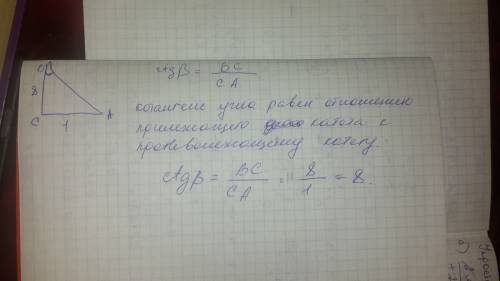 В
8
С
1
А
ctgβ = BC / CA
котангенс угла равен отношению
прилежащего катета к
противолежащему катету.
ctgβ = BC / CA = 8 / 1 = 8.